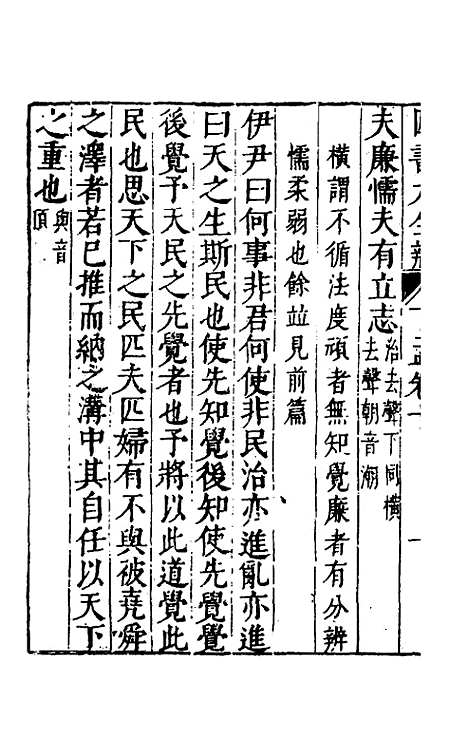 夫廉懦夫有立志治去聲下同橫去聲朝音潮
橫謂不循法度頑者無知覺廉者有分辨
懦柔弱也餘並見前篇
伊尹曰何事非君何使非民治亦進亂亦進
曰天之生斯民也使先知覺後知使先覺覺
後覺予天民之先覺者也予將以此道覺此
民也思天下之民匹夫匹婦有不與被堯舜
之澤者若已推而納之溝中其自任以天下
之重也與音預